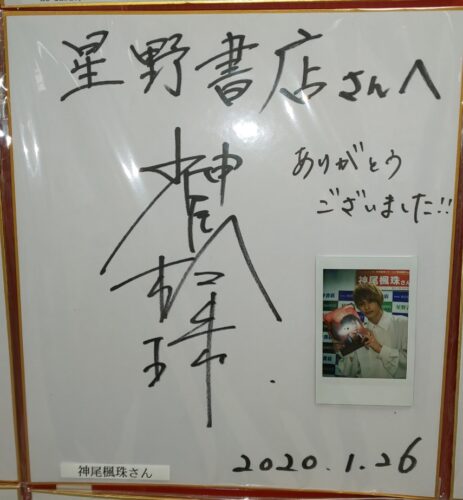 星野書店さんへ
ありがとう
ございました!!
神尾楓珠さん
神尾楓珠さん
2020.1.26